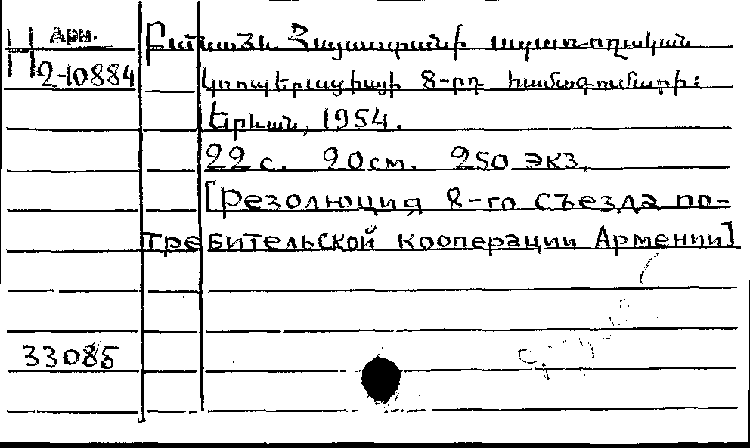 Арм.
Н
2-10884
Բանաձև Հայաստանի սպառողական
կոոպերացիայի 8-րդ համագումարի:
Երևան, 1954.
22 с. 20см. 250 экз.
[Резолюция 8-го съезда по-
требительской кооперации Армении]
33085